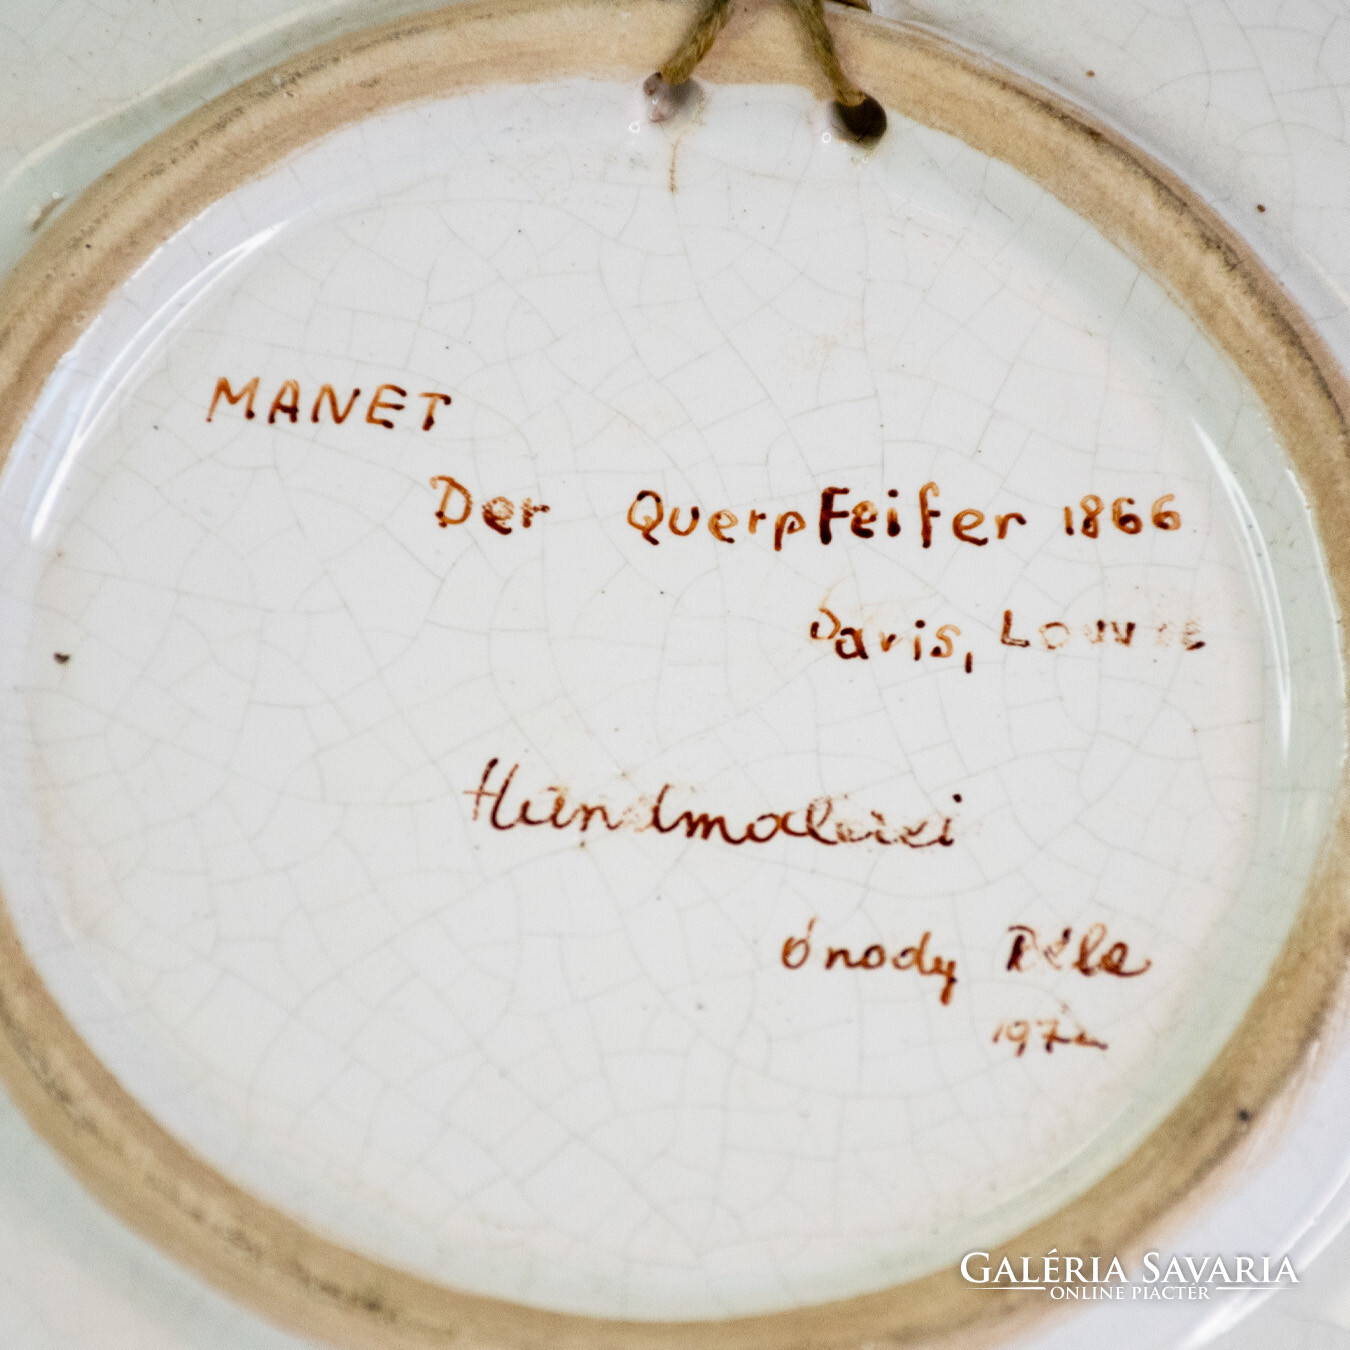 MANET
Der Querpfeifer 1866
Paris, Louvre
Handmalerei
Ónody Béla
GALÉRIA SAVARIA
ONLINE PIACTÉR